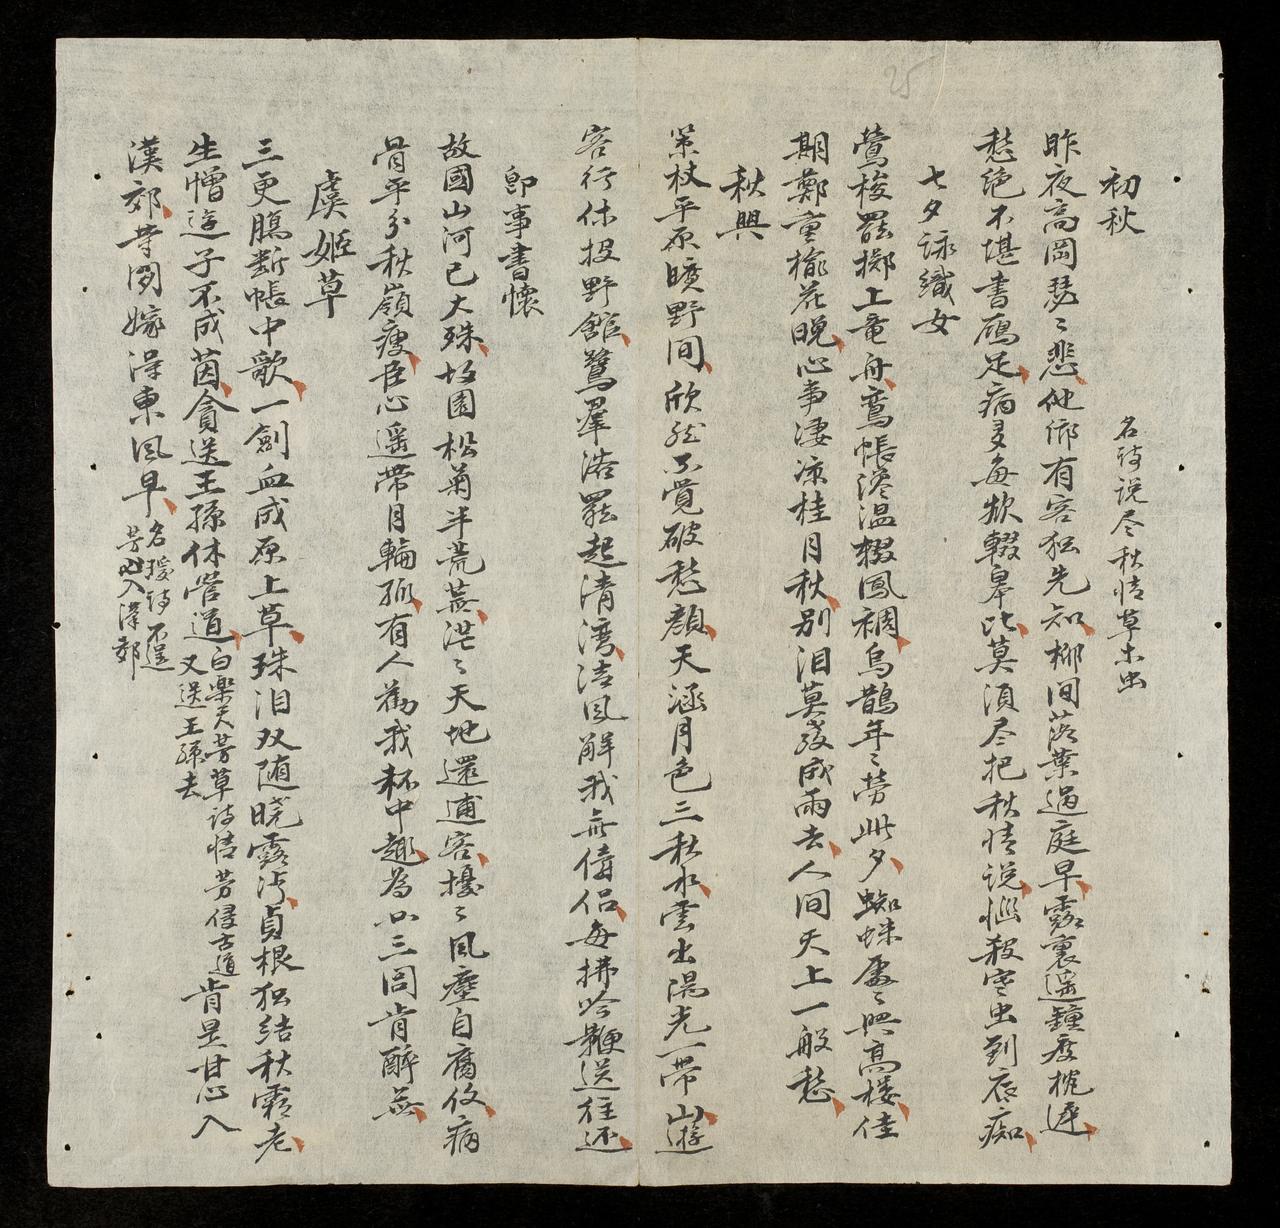 初秋
名詩說尽秋情草木虫
昨夜高岡瑟〻悲他鄉有客独先知柳間落葉過庭早露裏遥鐘度枕遲
愁絶不堪書鴈足病多每欲輟皐比莫須尽把秋情说惱殺寒虫到底痴
七夕詠織女
鶯梭罷擲上竜舟鸞帳瀅温掇鳳裯烏鵲年〻勞此夕蜘蛛屡〻興高楼佳
期鄭重楡花晚心事凄凉桂月秋别泪莫教成雨去人间天上一般愁
秋興
策杖平原曠野间欣然不覺破愁顔天涵月色三秋水雲出湯光一带山遊
客行休投野館鷺羣浴罷起清湾清風解我無儔侣每拂吟鞭送往还
卽事書懷
故國山河已大殊故園松菊半荒蕪茫〻天地還逋客擾〻風塵自腐攸病
骨平分秋嶺瘦臣心遥带月輪孤有人勸我杯中趣為只三闾肯醉無
虞姬草
三更腸斷帳中歌一劍血成原上草珠泪双随晓露溥貞根独结秋霜老
生憎遊子不成茵貪送王孫休管道白樂天芳草詩情芳侵古道又送王孫去肯昱甘心入
漢郊
等閑嫁得東風早名援詩不逞芳心入漢郊